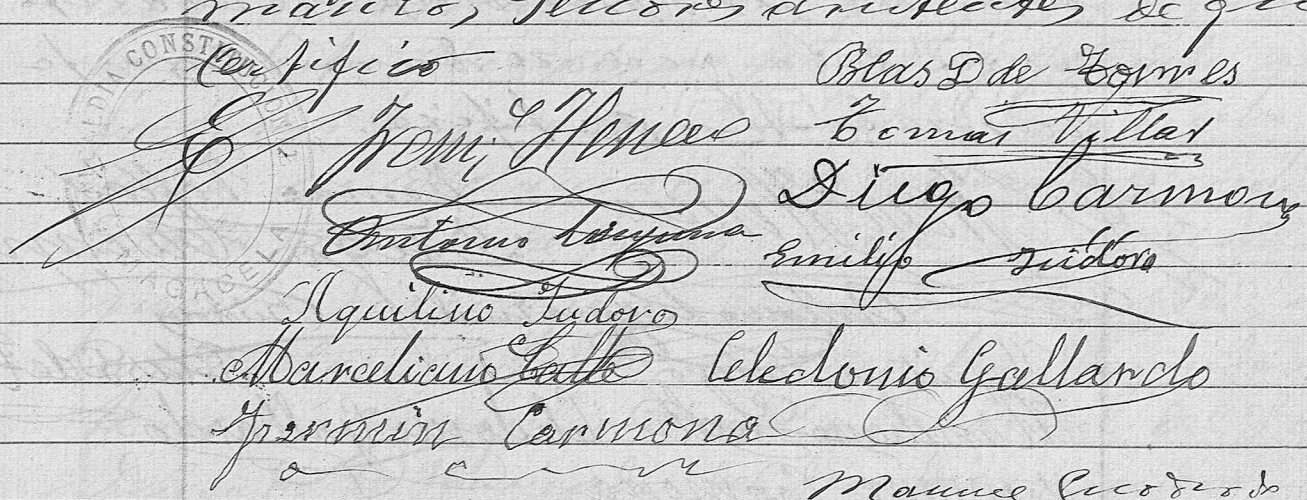 Señores asistentes de que
Certifico
Blas D de Torres
Tomas Villar
Diego Carmona
Antonio
Emilio Tudoro
Aquilino Tudoro
Marceliano Calle Celedonio Gallardo
Fermin Carmona
Manuel
ALCALDIA CONSTITUCIONAL
MAGACELA